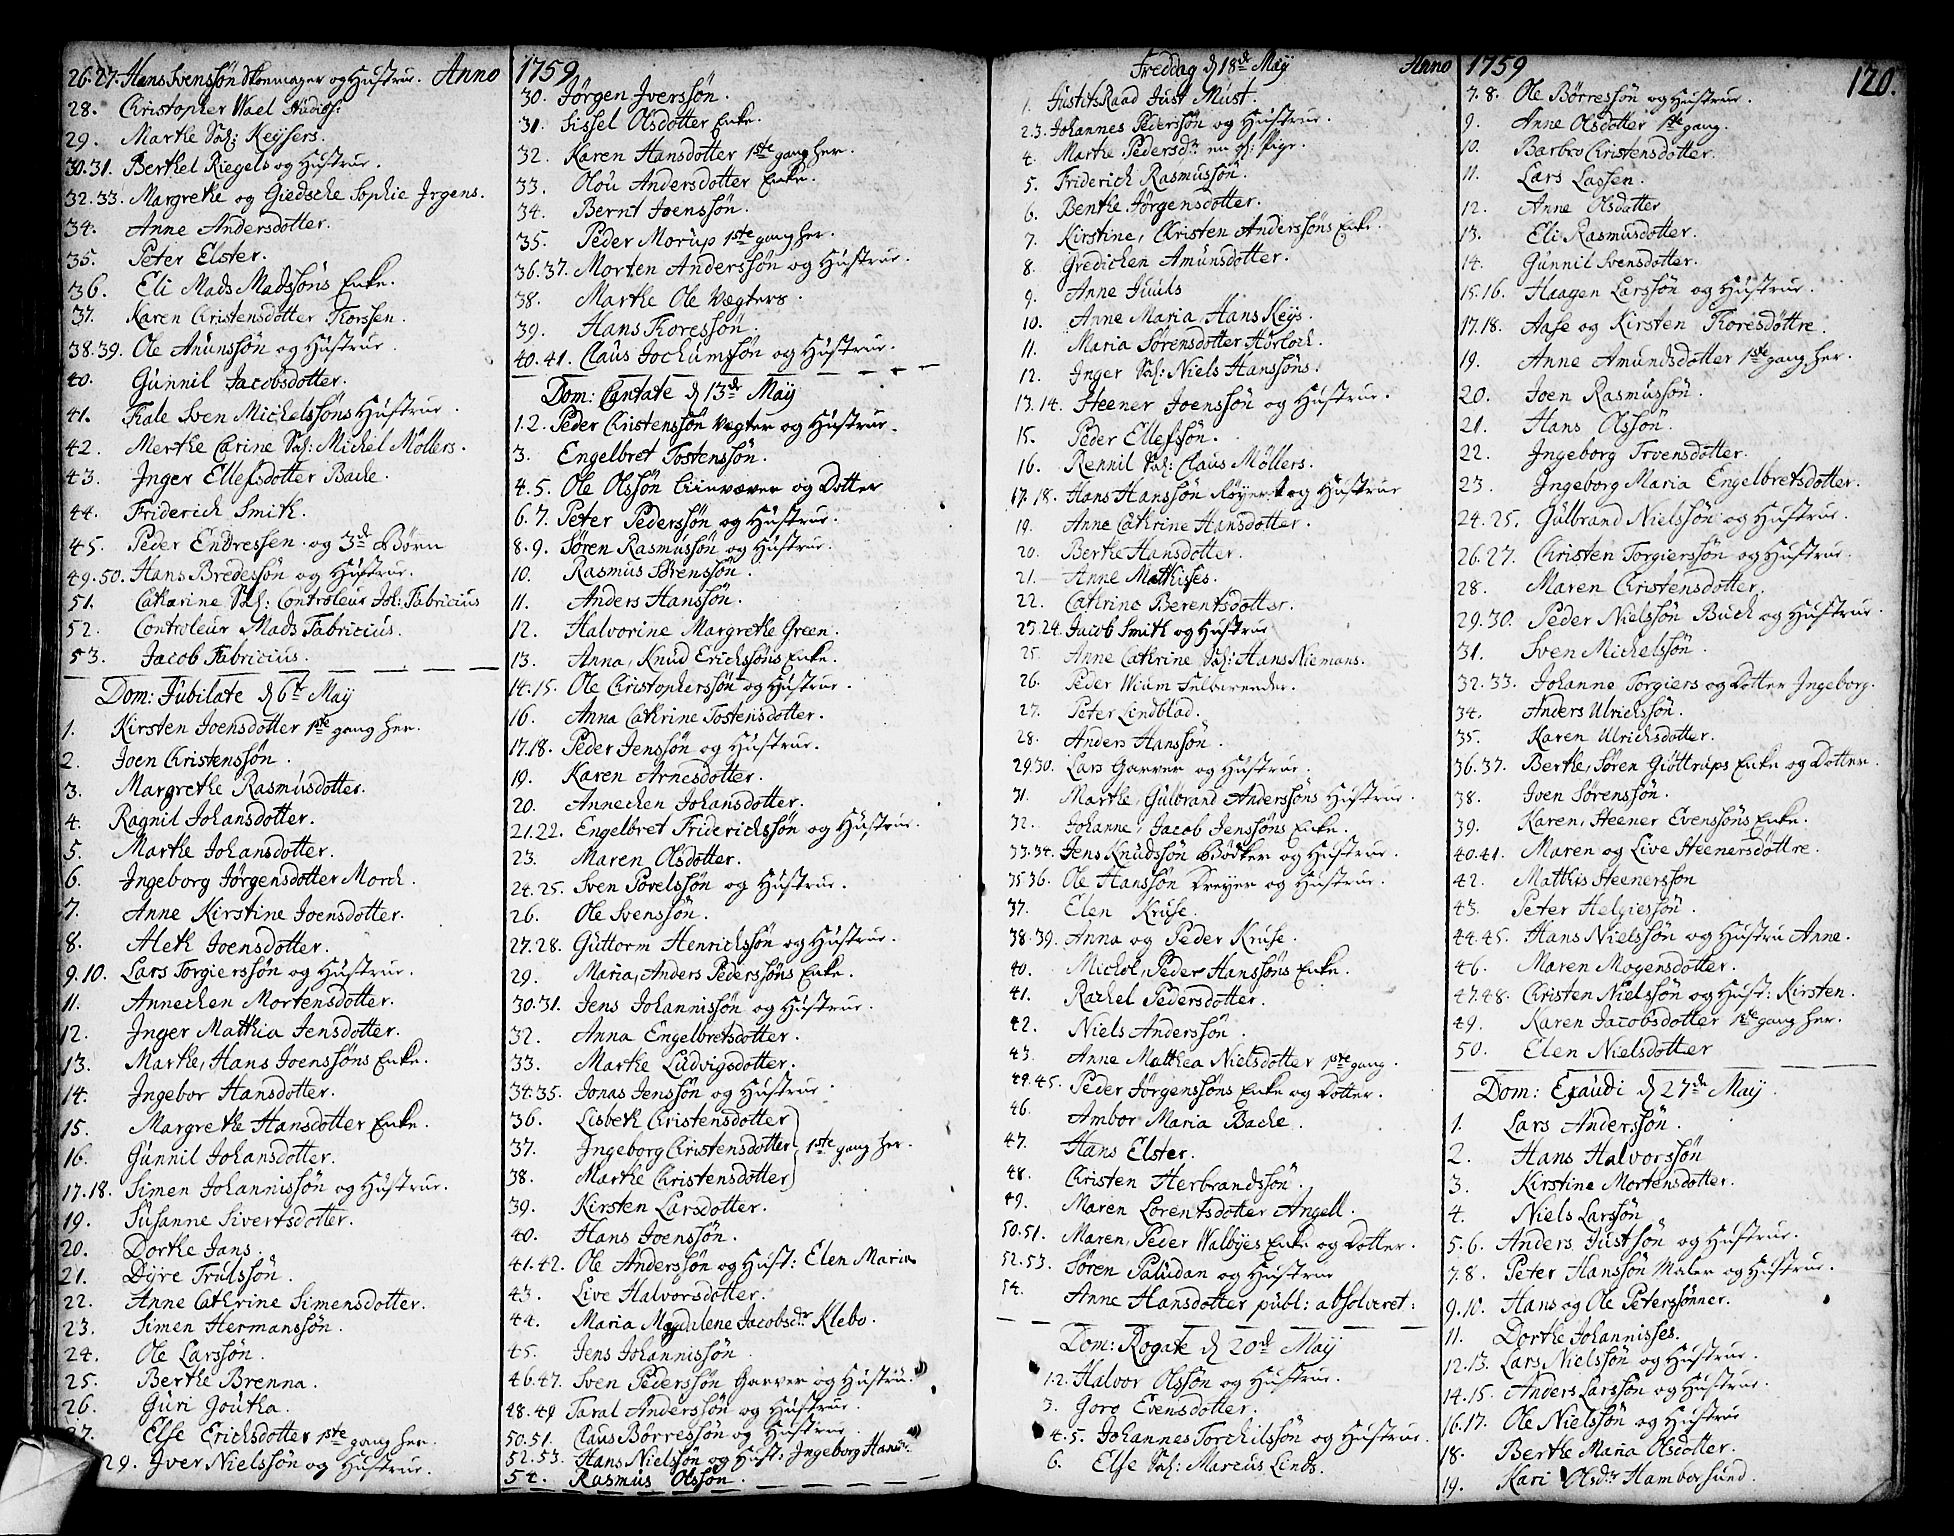 26.27. Hans Svenssøn Skoemager og Hustrue. Anno
28. Christopher Wael Studios:
29. Marthe Sal: Keysers.
30.31. Berthel Riegels og Hustrue.
32.33. Margrethe og Giedsche Sophie Irgens.
34. Anne Andersdotter.
35. Peter Elster.
36. Eli Mads Madssøns Enke.
37. Karen Christensdotter Thorssen.
38.39. Ole Anunssøn og Hustrue.
40. Gunnil Jacobsdotter.
41. Thale Sven Michelssøns Hustrue.
42. Merthe Carine Sal: Michel Møllers.
43. Inger Ellefsdotter Bache.
44. Friderich Smith.
45. Peder Endressen og 3de Børn
49.50. Hans Bredessøn og Hustrue.
51. Catharine Sal: Controleur Joh: Fabricius
52. Controleur Mads Fabricius.
53. Jacob Fabricius.
Dom: Jubilate d 6te Maÿ
1. Kirsten Joensdotter 1ste gang her.
2. Joen Christenssøn.
3. Margrethe Rasmusdotter.
4. Ragnil Johansdotter.
5. Marthe Johansdotter.
6. Ingeborg Jørgensdotter Morch.
7. Anne Kirstine Joensdotter.
8. Aleth Joensdotter.
9.10. Lars Torgierssøn og Hustrue.
11. Annechen Mortensdotter.
12. Inger Matthia Jensdotter.
13. Marthe, Hans Joenssøns Enke.
14. Ingebor Hansdotter.
15. Margrethe Hansdotter Enke.
16. Gunnil Johansdotter.
17.18. Simen Johannissøn og Hustrue.
19. Susanne Sivertsdotter.
20. Dorthe Jans.
21. Dÿre Trulssøn.
22. Anne Cathrine Simensdotter.
23. Simen Hermanssøn.
24. Ole Larssøn.
25. Berthe Brenna.
26. Guri Joutha.
27. Else Erichsdotter 1ste gang her.
29. Iver Nielssøn og Hustrue.
1759
30. Jørgen Iverssøn.
31. Sissel Olsdotter Enke.
32. Karen Hansdotter 1ste gang her.
33. Olou Andersdotter Enke.
34. Bernt Joenssøn.
35. Peder Morup 1ste gang her.
36.37. Morten Anderssøn og Hustrue.
38. Marthe Ole Vægters.
39. Hans Thoressøn.
40.41. Claus Jochumssøn og Hustrue.
Dom: Cantate d 13de Maÿ
1.2. Peder Christenssøn Vægter og Hustrue.
3. Engelbret Tostenssøn.
4.5. Ole Olssøn Liinvæver og Dotter
6.7. Peter Pederssøn og Hustrue.
8.9. Søren Rasmussøn og Hustrue.
10. Rasmus Sørenssøn.
11. Anders Hanssøn.
12. Halvorine Margrethe Green.
13. Anna, Knud Erichssøns Enke.
14.15. Ole Christopherssøn og Hustrue.
16. Anna Cathrine Tostensdotter.
17.18. Peder Jenssøn og Hustrue.
19. Karen Arnesdotter.
20. Annechen Johansdotter.
21.22. Engelbret Friderichssøn og Hustrue.
23. Maren Olsdotter.
24.25. Sven Povelssøn og Hustrue.
26. Ole Svenssøn.
27.28. Guttorm Henrichssøn og Hustrue.
29. Maria, Anders Pederssøns Enke.
30.31. Jens Johannissøn og Hustrue.
32. Anna Engelbretsdotter.
33. Marthe Ludvigsdotter.
34.35. Jonas Jenssøn og Hustrue.
36. Lisbeth Christensdotter
37. Ingeborg Christensdotter 1ste gang her.
38. Marthe Christensdotter
39. Kirsten Larsdotter.
40. Hans Joenssøn.
41.42. Ole Anderssøn og Hust: Elen Maria
43. Live Halvorsdotter.
44. Maria Magdalene Jacobsdr Klebo.
45. Jens Johannissøn.
46.47. Sven Pederssøn Garver og Hustrue.
48.49 Taral Anderssøn og Hustrue.
50.51. Claus Børressøn og Hustrue
52.53. Hans Nielssøn og Hust: Ingeborg Hansdr.
54. Rasmus Olssøn.
Freddag d 18de Maÿ Anno
1. Justits Raad Just Must.
2.3. Johannes Pederssøn og Hustrue.
4. Marthe Pedersdr en gl: Pige.
5. Friderich Rasmussøn.
6. Benthe Jørgensdotter.
7. Kirstine, Christen Anderssøns Enke.
8. Gredichen Amunsdotter.
9. Anne Juuls
10. Anne Maria, Hans Keys.
11. Maria Sørensdotter Hørloch.
12. Inger Sal: Niels Hanssøns.
13.14. Steener Joenssøn og Hustrue.
15. Peder Ellefssøn.
16. Rennil Sal: Claus Møllers.
17.18. Hans Hanssøn Røyert og Hustrue
19. Anne Cathrine Hansdotter.
20. Berthe Hansdotter.
21. Anne Mathisses.
22. Cathrine Berentsdotter.
23.24. Jacob Smith og Hustrue
25. Anne Cathrine Sal: Hans Niemans.
26. Peder Wium
27. Peter Lindblad.
28. Anders Hanssøn.
29.30. Lars Garver og Hustrue.
31. Marthe, Gulbrand Anderssøns Hustrue.
32. Johanne, Jacob Jenssøns Enke.
33.34. Jens Knudssøn Bødker og Hustrue.
35.36. Ole Hanssøn Dreyer og Hustrue.
37. Elen Kruse.
38.39. Anna og Peder Kruse.
40. Michel, Peder Hanssøns Enke.
41. Rachel Pedersdotter.
42. Niels Anderssøn.
43. Anne Matthea Nielsdotter 1ste gang.
44.45. Peder Jørgenssøns Enke og Dotter.
46. Ambor Maria Bache.
47. Hans Elster.
48. Christen Herbrandssøn.
49. Maren Lorentsdotter Angell.
50.51. Maren, Peder Walbÿes Enke og Dotter.
52.53. Søren Paludan og Hustrue
54. Anne Hansdotter publ: absolveret:
Dom: Rogate d 20de Maÿ
1.2. Halvor Olssøn og Hustrue.
3. Goro Evensdotter.
4.5. Johannes Torchilssøn og Hustrue.
6. Else Sal: Marcus Linds.
1759 120.
7.8. Ole Børressøn og Hustrue.
9. Anne Olsdotter 1ste gang.
10. Barbro Christensdotter.
11. Lars Lassen.
12. Anne Olsdotter
13. Eli Rasmusdotter.
14. Gunnil Svensdotter.
15.16. Haagen Larssøn og Hustrue.
17.18. Aase og Kirsten Thoresdøttre.
19. Anne Amundsdotter 1ste gang her.
20. Joen Rasmussøn.
21. Hans Olssøn.
22. Ingeborg Troensdotter.
23. Ingeborg Maria Engelbretsdotter.
24.25. Gulbrand Nielssøn og Hustrue.
26.27. Christen Torgierssøn og Hustrue.
28. Maren Christensdotter.
29.30. Peder Nielssøn Buch og Hustrue
31. Sven Michelssøn.
32.33. Johanne Torgiers og Dotter Ingeborg.
34. Anders Ulrichssøn.
35. Karen Ulrichsdotter.
36.37. Berthe, Søren Giøttrups Enke og Dotter.
38. Iven Sørenssøn.
39. Karen, Steener Evenssøns Enke.
40.41. Maren og Live Steenersdøttre.
42. Matthis Steenerssøn
43. Peter Helgiessøn.
44.45. Hans Nielssøn og Hustrue Anne.
46. Maren Mogensdotter.
47.48. Christen Nielssøn og Hust: Kirsten.
49. Karen Jacobsdotter 1ste gang her.
50. Elen Nielsdotter
Dom: Exaudi d 27de Maÿ.
1. Lars Anderssøn.
2. Hans Halvorssøn
3. Kirstine Mortensdotter.
4. Niels Larssøn
5.6. Anders Justsøn og Hustrue.
7.8. Peter Hanssøn Maler og Hustrue.
9.10. Hans og Ole Peterssønner.
11. Dorthe Johannisses.
12.13. Lars Nielssøn og Hustrue.
14.15. Anders Larssøn og Hustrue.
16.17. Ole Nielssøn og Hustrue
18. Berthe Maria Olsdotter.
19. Kari Olsdr Hamborsund.